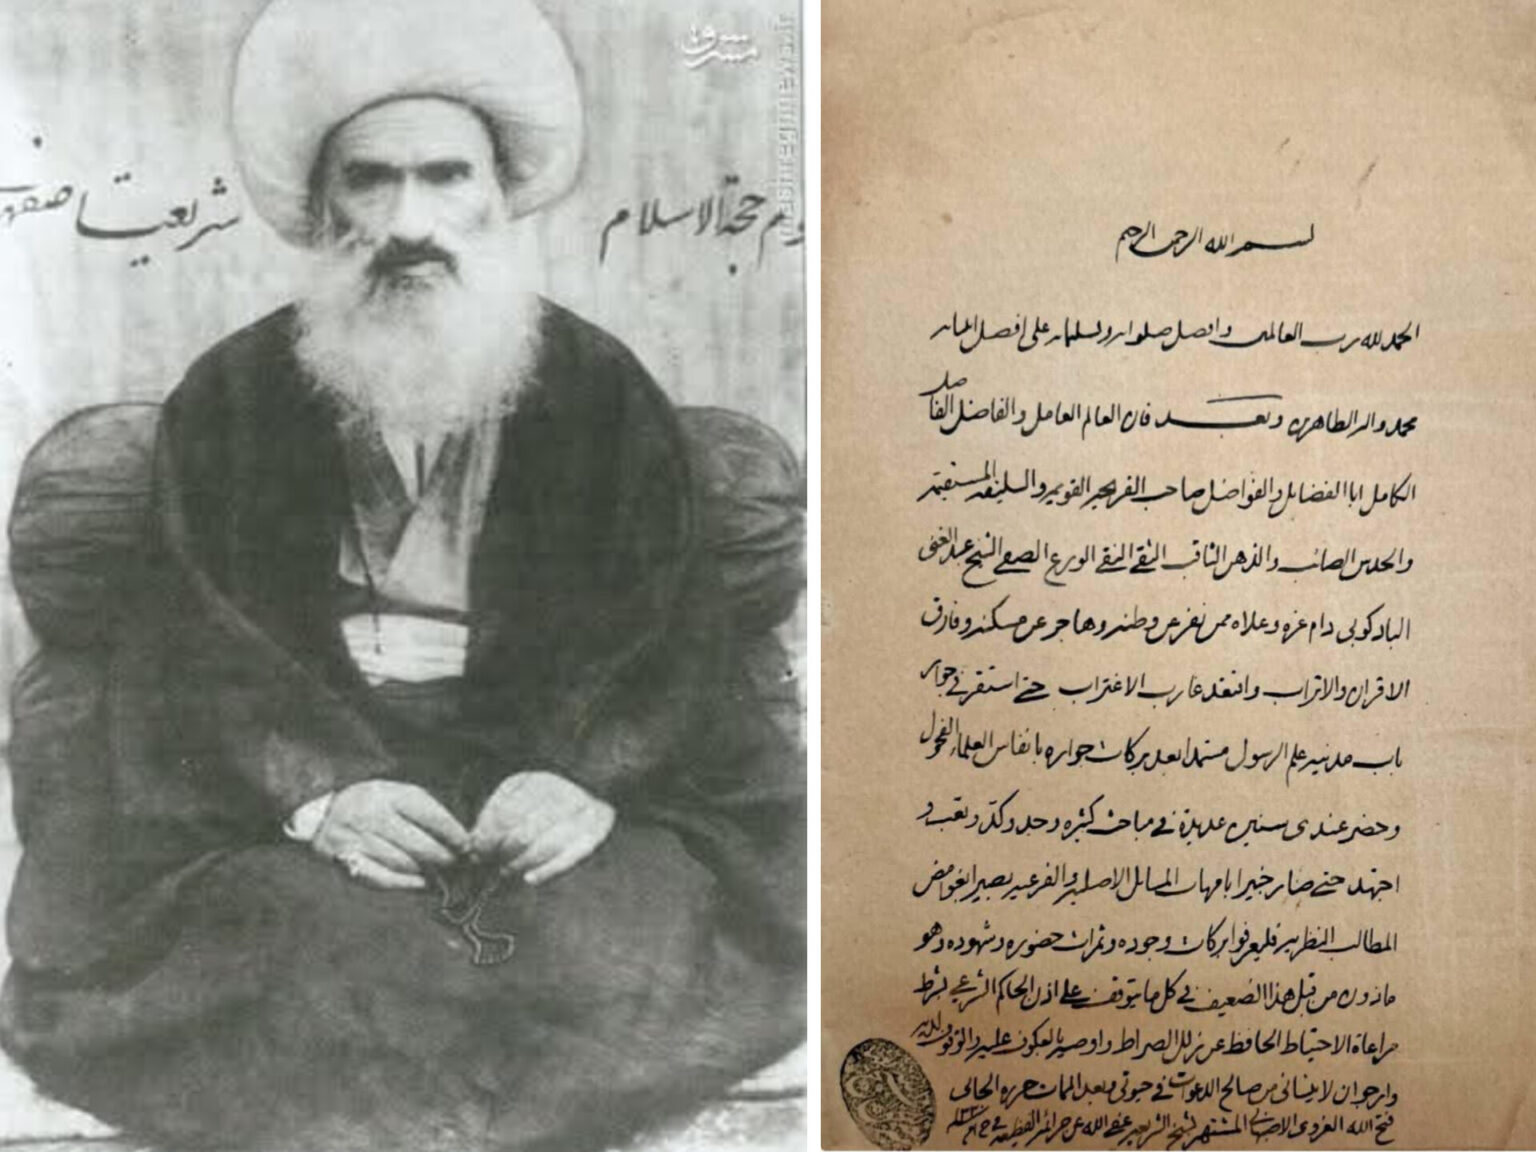 مشرق
mashreghnews.ir
حجة الاسلام
شریعت اصفها
بسم الله الرحمن الرحيم
الحمد لله رب العالمين وافضل صلواته وتسليماته على افضل
محمد واله الطاهرين وبعد فان العالم العامل والفاضل الفاضل
الكامل ابا الفضايل والفواضل صاحب القريحه القويمه والسليقه المستقيمه
والحدس الصائب والذهن الثاقب التقي النقي الورع الصفي الشيخ عبد الغني
البادكوبي دام عزه وعلاه ممن نفر عن وطنه وهاجر عن مسكنه وفارق
الاقران والاتراب واقتعد غارب الاغتراب حتى استقر في جوار
باب مدينه علم الرسول مستمدا بعد بركات جواره بانفاس العلماء الفحول
وحضر عندي سنين عديدة في مباحث كثيره وجد وكد وتعب و
اجتهد حتى صار خبيرا بامهات المسايل الاصليه والفرعيه بصيرا بغوامض
المطالب النظريه فليعرفوا بركات وجوده وثمرات حضوره وشهوده وهو
ماذون من قبل هذا الضعيف في كل ما يتوقف على اذن الحاكم الشرعي بشرط
مراعاة الاحتياط الحافظ عن زلل الصراط واوصيه بالعكوف عليه والوقوف لديه
وارجو ان لا ينساني من صالح الدعوات في حيوتي وبعد الممات حرره الجاني
فتح الله الغروي الاصبهاني المشتهر بشيخ الشريعه عفى الله عن جرائمه الفظيعه في